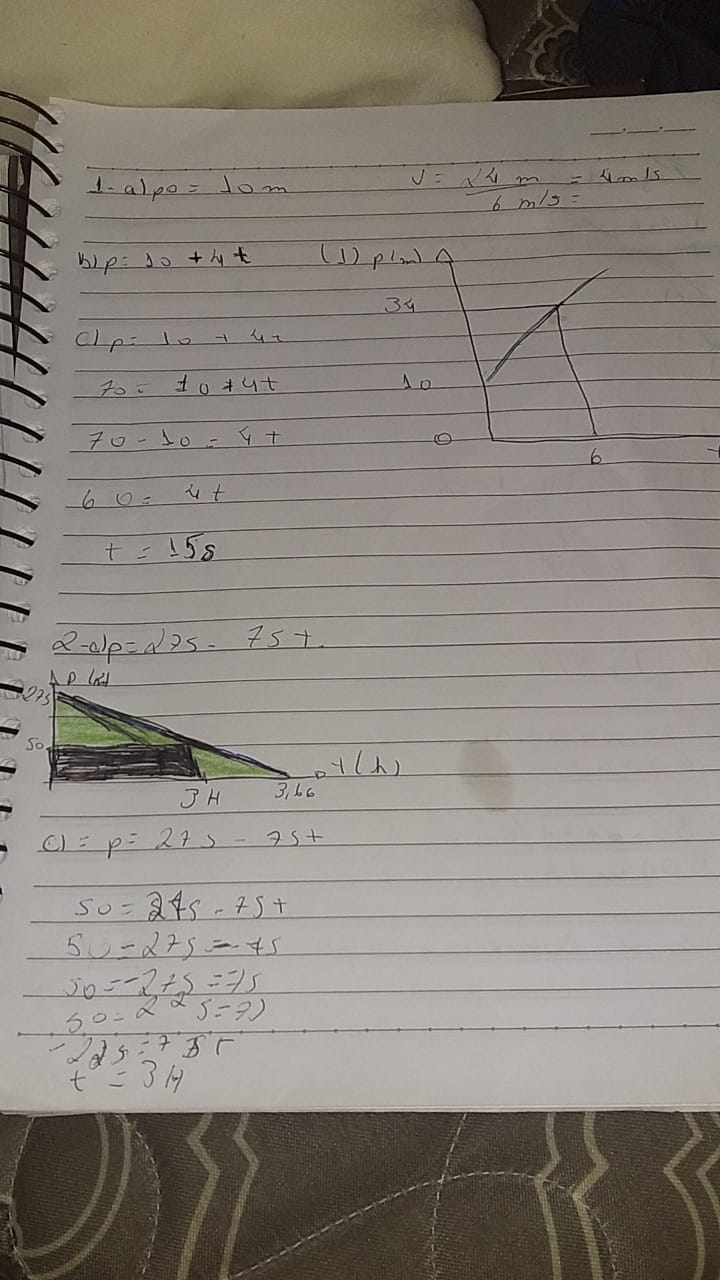 1-a) po = 10 m
v = 24 m = 4 m/s
6 m/s =
b) p = 10 + 4 t
(1) p (m)
34
10
0
6
t
c) p = 10 + 4t
70 = 10 + 4t
70 - 10 = 4 t
60 = 4t
t = 15 s
2-a) p = 275 - 75 t.
p (m)
275
50
3 H
3,66
t (h)
c) = p = 275 - 75 t
50 = 275 - 75 t
50 - 275 = -75
50 = -275 = 75
-225 = 75 t
t = 3 H